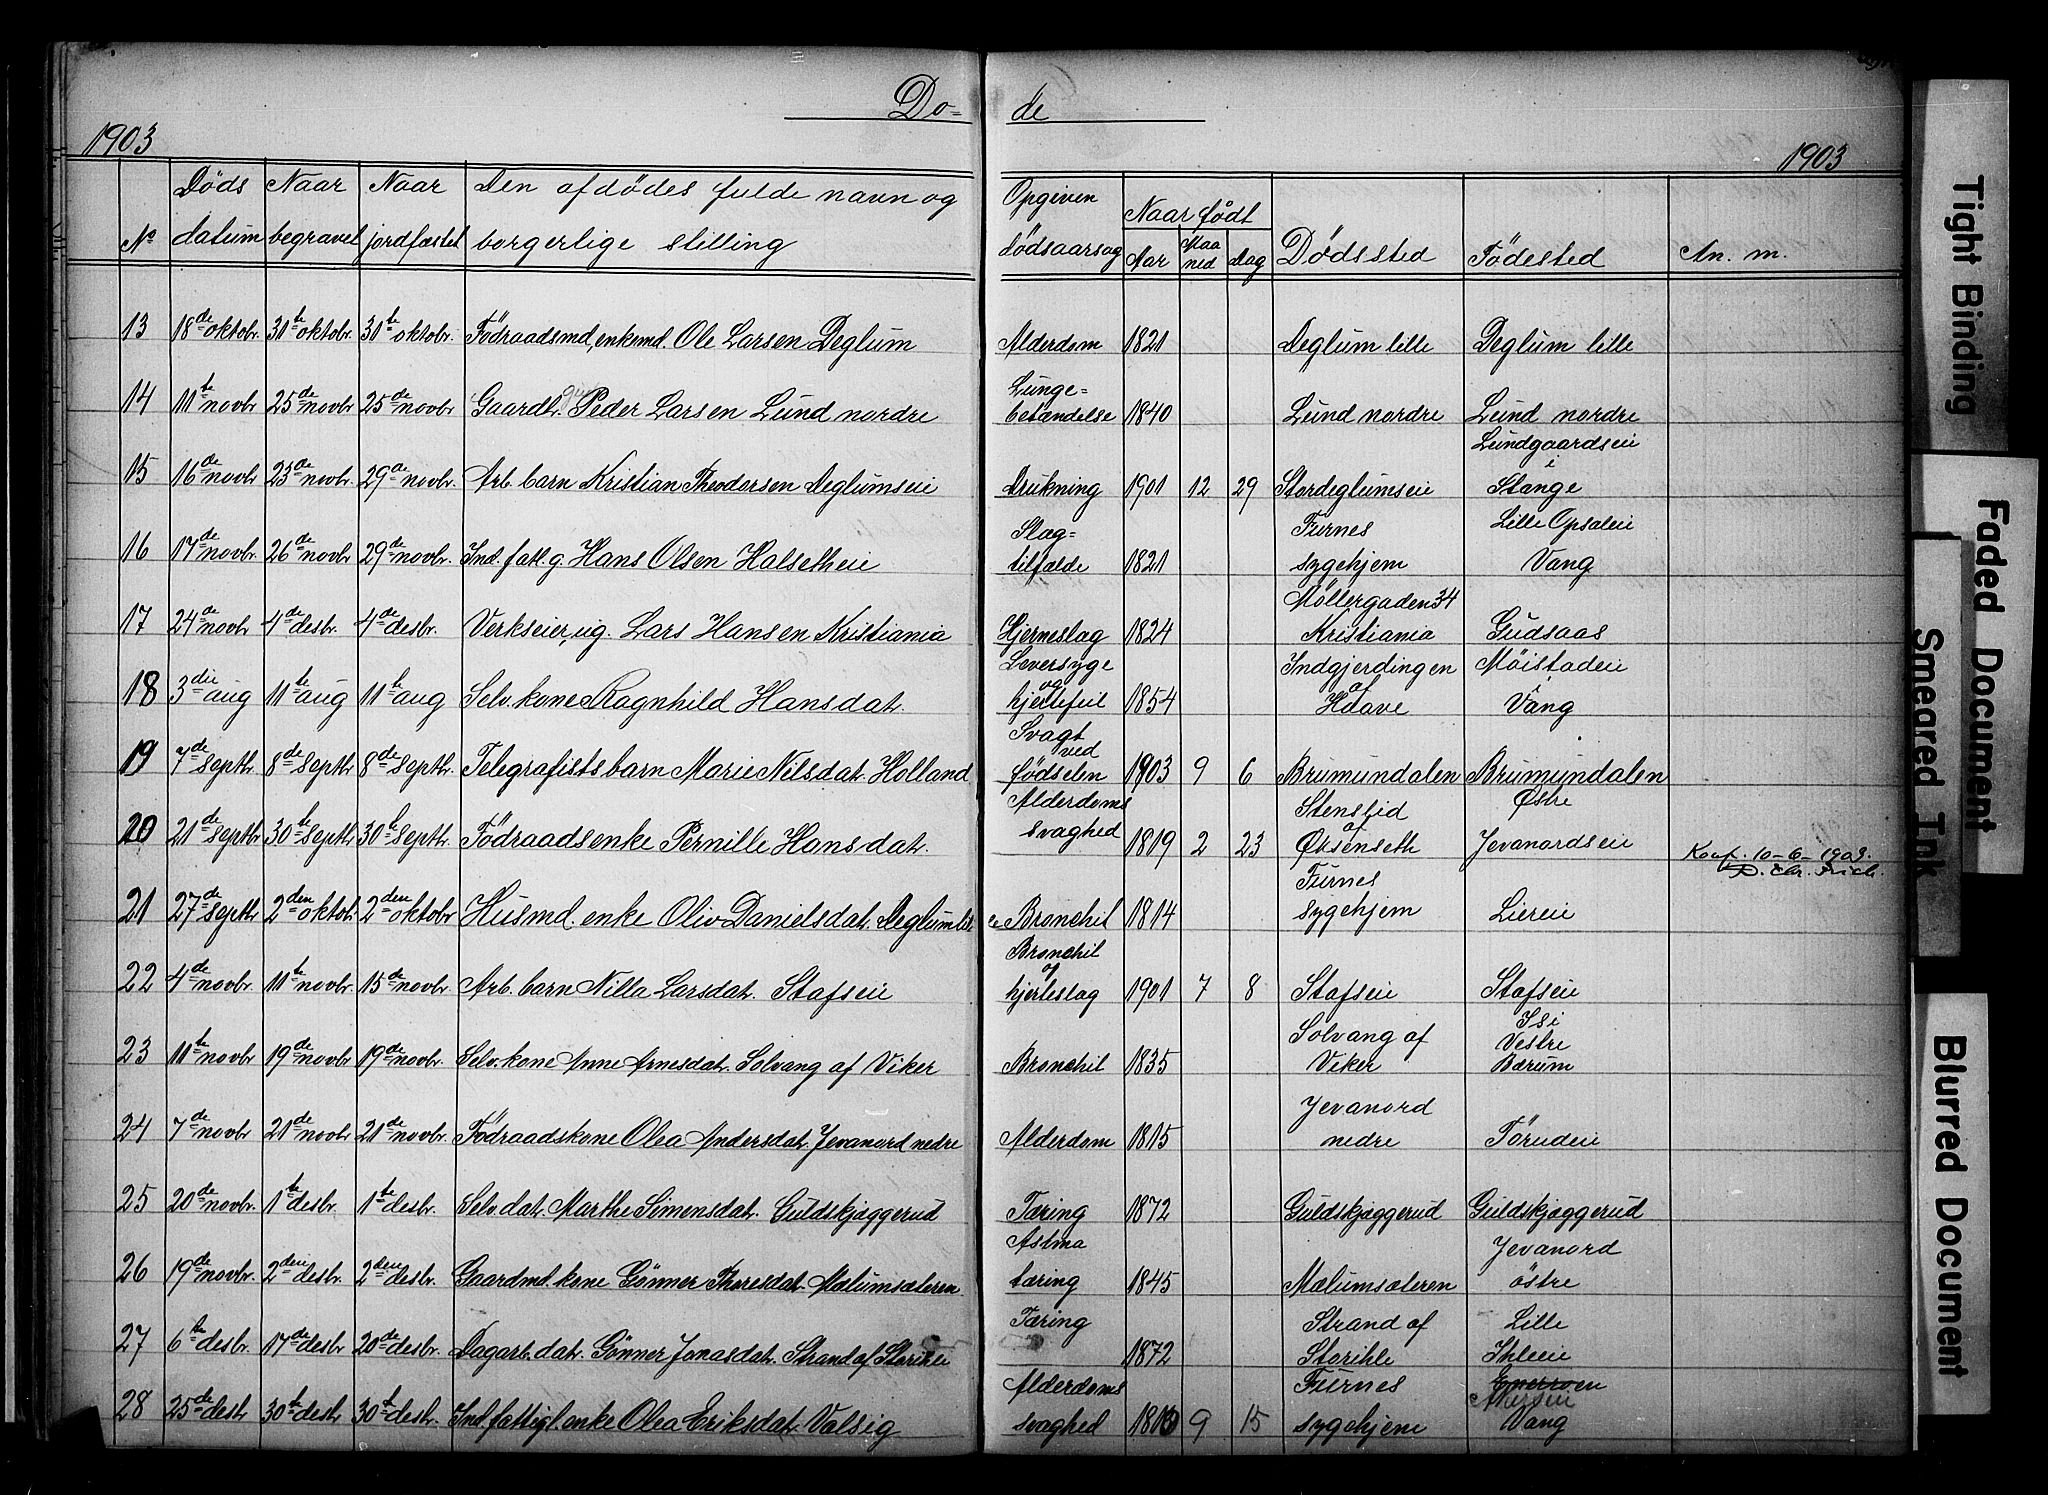 Dø- de
1903 1903
No Døds datum Naar begravet Naar jordfæstet Den afdødes fulde navn og borgerlige stilling Opgiven dödsaarsag Naar födt Aar Maaned Dag Dødssted Födested An. m.
13 18de oktobr. 31te oktobr. 31te oktobr. Födraadsmd, enkemd. Ole Larsen Deglum Alderdom 1821 Deglum lille Deglum lille
14 11te novbr 25de novbr 25de novbr Gaardbr. Peder Larsen Lund nordre Lunge- betændelse 1840 Lund nordre Lund nordre
15 16de novbr 23de novbr. 29de novbr. Arb. barn Kristian Theodorsen Deglumseie Drukning 1901 12 29 Stordeglumseie Lundgaardseie i Stange
16 17de novbr. 26de novbr 29de novbr. Ind. fatt.g. Hans Olsen Halsetheie Slag- tilfælde 1821 Furnes sygehjem Lille Opsaleie Vang
17 24de novbr 4de desbr. 4de desbr. Verkseier, ug. Lars Hansen Kristiania Hjerneslag 1824 Möllergaden 34 Kristiania Gudsaas
18 3die aug 11te aug 11te aug Selv. kone Ragnhild Hansdat. Leversyge og hjertefeil 1854 Indgjerdingen af Haave Möistadeie i Vang
19 7de septbr 8de septbr 8de septbr. Telegrafistsbarn Marie Nilsdat. Holland Svagt ved födselen 1903 9 6 Brumundalen Brumundalen
20 21de septbr 30te septbr 30te septbr. Födraadsenke Pernille Hansdat. Alderdoms svaghed 1819 2 23 Stenslid af Øksenseth Østre Jevanordseie
Konf. 10-6-1903.
D. Chr. Frich.
21 27de septbr 2den oktobr. 2den oktobr Husmd. enke Oliv Danielsdat. Deglumlile Bronchit 1814 Furnes sygehjem Liereie
22 4de novbr. 11te novbr. 15de novbr. Arb. barn Nilla Larsdat. Stafseie Bronchit og hjerteslag 1901 7 8 Stafseie Stafseie
23 11te novbr 19de novbr 19de novbr. Selv. kone Anne Arnesdat. Solvang af Viker Bronchit 1835 Solvang af Viker Isi Vestre Bærum
24 7de novbr 21de novbr 21de novbr. Födraadskone Olea Andersdat. Jevanord nedre Alderdom 1815 Jevanord nedre Törudeie
25 20de novbr. 1te desbr. 1te desbr. Selv. dat. Marthe Simensdat. Guldskjæggerud Tæring 1872 Guldskjæggerud Guldskjæggerud
26 19de novbr. 2den desbr. 2den desbr. Gaardmd. kone Gönner Thoresdat. Mælumsæteren Astma tæring 1845 Mælumsæteren Jevanord östre
27 6te desbr. 17de desbr 20de desbr. Dagarb. dat. Gönner Jonasdat. Strand af Storihle Tæring 1872 Strand af Storihle Lille Ihleeie
28 25de desbr 30te desbr 30te desbr. Ind. fattigl. enke Olea Eriksdat. Valsig Alderdoms svaghed 9 15 Furnes sygehjem Vang
Tight Binding
Faded Document
Smeared Ink
Blurred Document